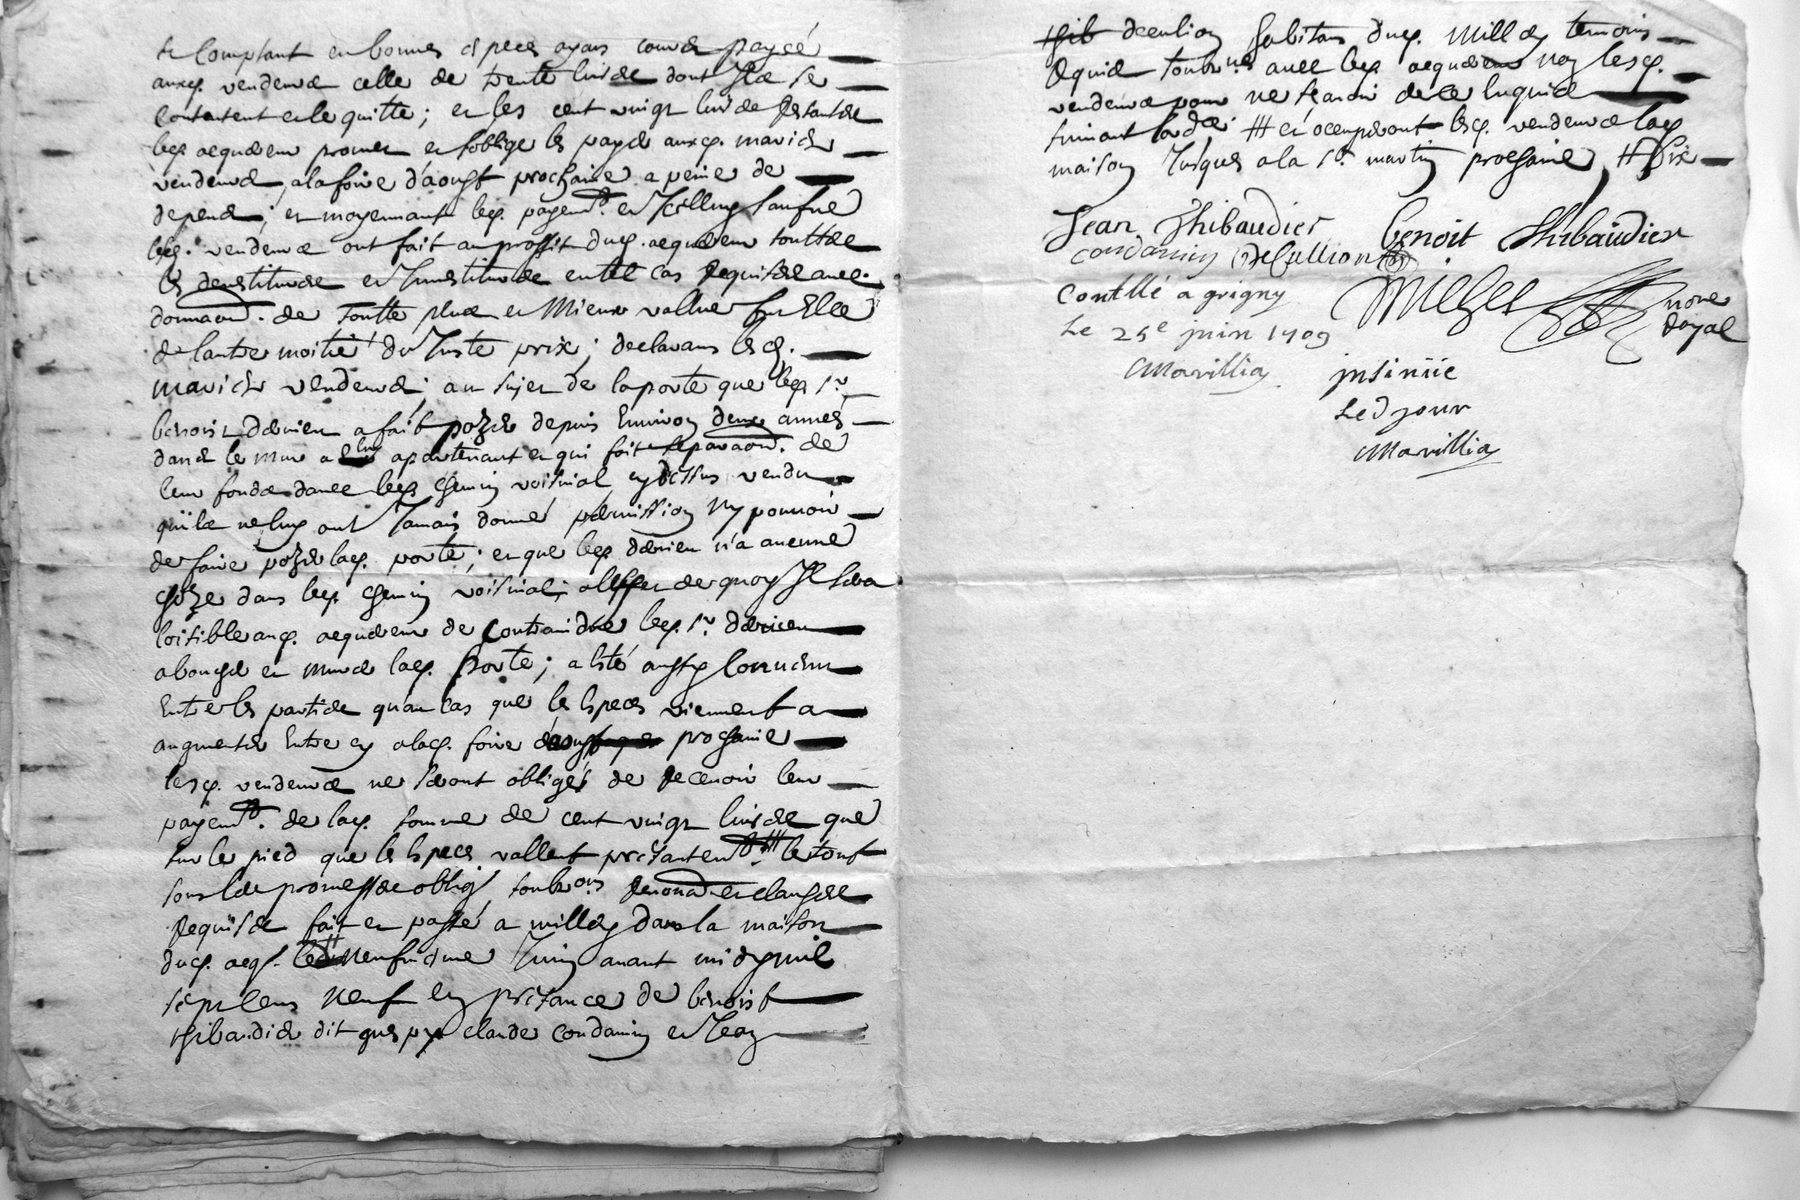 et comptant en bonnes especes ayans cours payée
auxd. vendeurs celle de trente livres dont Ils se
contantent et le quitte; et les cent vingt livres restantes
led. acquereur promet et soblige les payer auxd. mariés
vendeurs, a la foire d'aoust prochaine a peine de
depens; et moyennant led. payemt. et
led. vendeurs ont fait au proffit dud. acquereur touttes
les devestitures et Investitures en tel cas requises avec
donnaon. de toutte plus et Mieux vallue sur Elle
de lautre moitié du Juste prix; declarans lesd.
mariés vendeurs; au sujet de la porte que led. sr.
benoist derieu a fait pozer depuis Environ deux années
dans le mur a eluy apartenant et qui fait separaon. de
leur fonds davec led. chemin voisinal cy dessus vendu
quils ne luy ont Jamais donné permission Ny pouvoir
de faire pozer lad. porte; et que led. derieu n'a aucune
choze dans led. chemin voisinal; a leffet de quoy Il sera
loisible aud. acquereur de Contraindre led. sr. derieu
a boucher et murer lad. Porte; a esté aussy convenu
Entre les parties quau cas que les Especes viennent a
augmenter Entre cy a lad. foire d'aoust prochaine
lesd. vendeurs ne seront obligés de recevoir leur
payemt. de lad. somme de cent vingt livres que
sur le pied que les Especes vallent presantemt. # le tout
sous les promesses oblig. soubons. renonaon. et clauses
requises fait et passé a millery dans la maison
dud. acq. le neufvieme Juin avant midy mil
sept cens Neuf En presance de benoist
thibaudier dit claude condamin et Jean
thib decullion habitans dud. Millery temoins
requis soubsnés avec led. acquereur non lesd.
vendeurs pour ne scavoir de ce Enquis
suivant lorde. # et occuperont lesd. vendeurs lad.
maison Jusques a la st. martin prochaine # Six
Jean Thibaudier Benoit Thibaudier
condamin Decullion
Contllé a grigny
Le 25e juin 1709 nore royal
Marvillia insinüé
Led jour
Marvillia